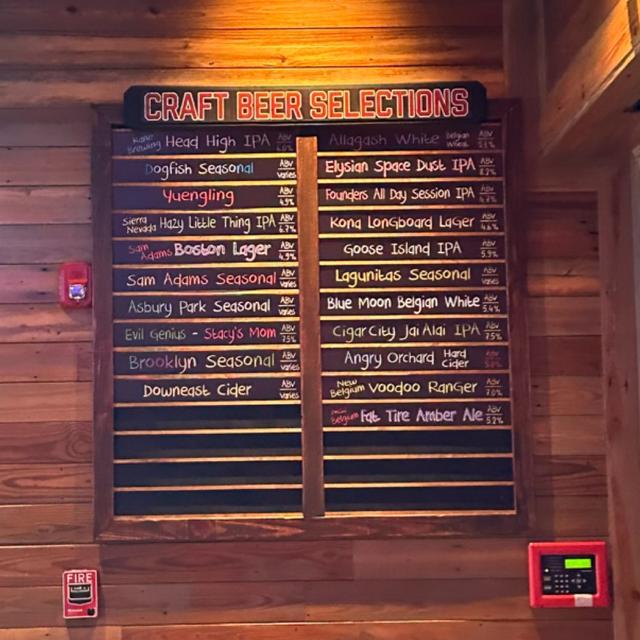 CRAFT BEER SELECTIONS
Kane Brewing Head High IPA ABV
Dogfish Seasonal ABV varies
Yuengling ABV 4.9%
Sierra Nevada Hazy Little Thing IPA ABV 6.7%
Sam Adams Boston Lager ABV 4.9%
Sam Adams Seasonal ABV varies
Asbury Park Seasonal ABV varies
Evil Genius - Stacy's Mom ABV 7.5%
Brooklyn Seasonal ABV varies
Downeast Cider ABV varies
Allagash White Belgian Wheat ABV
Elysian Space Dust IPA ABV 8.2%
Founders All Day Session IPA ABV
Kona Longboard Lager ABV 4.6%
Goose Island IPA ABV 5.9%
Lagunitas Seasonal ABV varies
Blue Moon Belgian White ABV 5.4%
Cigar City Jai Alai IPA ABV 7.5%
Angry Orchard Hard Cider ABV
New Belgium Voodoo Ranger ABV 7.0%
Belgium Fat Tire Amber Ale ABV 5.2%
FIRE